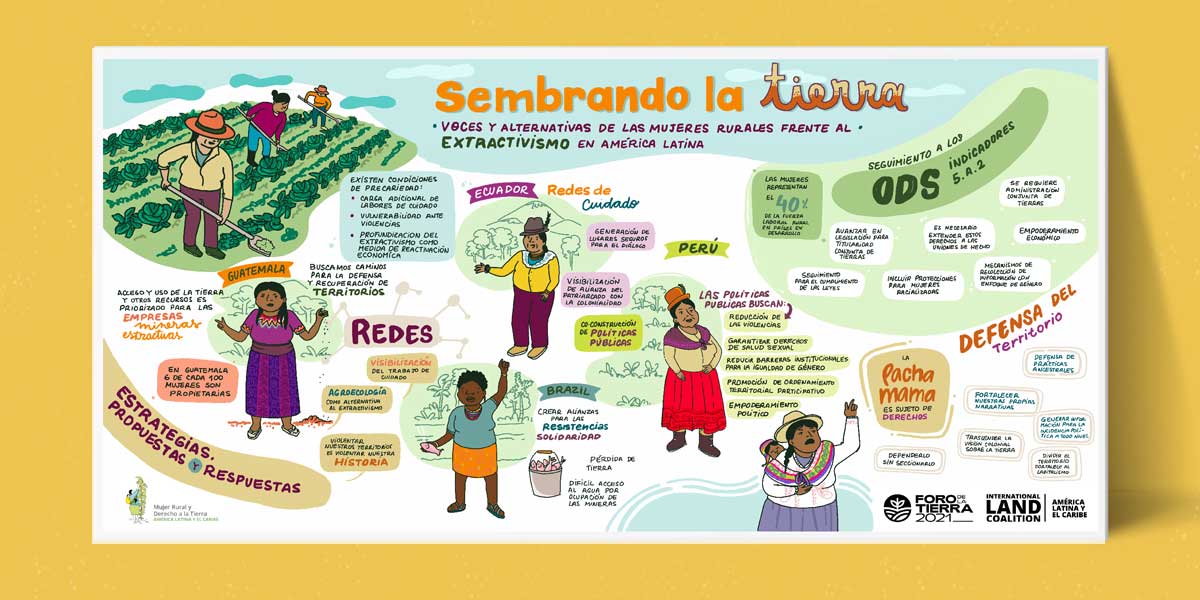 Sembrando la tierra
• VOCES Y ALTERNATIVAS DE LAS MUJERES RURALES FRENTE AL •
EXTRACTIVISMO EN AMÉRICA LATINA
EXISTEN CONDICIONES
DE PRECARIEDAD:
• CARGA ADICIONAL DE
LABORES DE CUIDADO
• VULNERABILIDAD ANTE
VIOLENCIAS
• PROFUNDIZACIÓN DEL
EXTRACTIVISMO COMO
MEDIDA DE REACTIVACIÓN
ECONÓMICA
GUATEMALA
BUSCAMOS CAMINOS
PARA LA DEFENSA
Y RECUPERACIÓN DE
TERRITORIOS
ACCESO Y USO DE LA TIERRA
Y OTROS RECURSOS ES
PRIORIZADO PARA LAS
EMPRESAS
mineras
extractivas
EN GUATEMALA
6 DE CADA 100
MUJERES SON
PROPIETARIAS
ESTRATEGIAS,
PROPUESTAS Y RESPUESTAS
REDES
VISIBILIZACIÓN
DEL TRABAJO DE
CUIDADO
AGROECOLOGÍA
COMO ALTERNATIVA
AL EXTRACTIVISMO
VIOLENTAR
NUESTROS TERRITORIOS
ES VIOLENTAR NUESTRA
HISTORIA
ECUADOR
Redes de
Cuidado
GENERACIÓN DE
LUGARES SEGUROS
PARA EL DIÁLOGO
VISIBILIZACIÓN
DE ALIANZA DEL
PATRIARCADO CON
LA COLONIALIDAD
CO-CONSTRUCCIÓN
DE POLÍTICAS
PÚBLICAS
BRAZIL
CREAR ALIANZAS
PARA LAS
RESISTENCIAS
SOLIDARIDAD
PÉRDIDA DE
TIERRA
DIFÍCIL ACCESO
AL AGUA POR
OCUPACIÓN DE
LAS MINERAS
PERÚ
LAS POLÍTICAS
PUBLICAS BUSCAN:
REDUCCIÓN DE
LAS VIOLENCIAS
GARANTIZAR DERECHOS
DE SALUD SEXUAL
REDUCIR BARRERAS INSTITUCIONALES
PARA LA IGUALDAD DE GÉNERO
PROMOCIÓN DE ORDENAMIENTO
TERRITORIAL PARTICIPATIVO
EMPODERAMIENTO
POLÍTICO
SEGUIMIENTO A LOS
ODS INDICADORES
5.A.2
LAS MUJERES
REPRESENTAN
EL 40%
DE LA FUERZA
LABORAL RURAL
EN PAÍSES EN
DESARROLLO
SE REQUIERE
ADMINISTRACIÓN
CONJUNTA DE
TIERRAS
AVANZAR EN
LEGISLACIÓN PARA
TITULARIDAD
CONJUNTA DE
TIERRAS
ES NECESARIO
EXTENDER ESTOS
DERECHOS A LAS
UNIONES DE HECHO
EMPODERAMIENTO
ECONÓMICO
SEGUIMIENTO
PARA EL CUMPLIMIENTO
DE LAS LEYES
INCLUIR PROTECCIONES
PARA MUJERES
RACIALIZADAS
MECANISMOS DE
RECOLECCIÓN DE
INFORMACIÓN CON
ENFOQUE DE GÉNERO
DEFENSA DEL
Territorio
LA
Pacha
mama
ES SUJETO DE
DERECHOS
DEFENSA DE
PRÁCTICAS
ANCESTRALES
FORTALECER
NUESTRAS PROPIAS
NARRATIVAS
GENERAR INFOR-
MACIÓN PARA LA
INCIDENCIA POLÍ-
TICA A TODO NIVEL
TRASCENDER LA
VISIÓN COLONIAL
SOBRE LA TIERRA
DEFENDERLO
SIN SECCIONARLO
DIVIDIR EL
TERRITORIO
FORTALECE AL
CAPITALISMO
Mujer Rural y
Derecho a la Tierra
AMÉRICA LATINA Y EL CARIBE
FORO DE LA
TIERRA
2021
INTERNATIONAL
LAND
COALITION
AMÉRICA
LATINA Y
EL CARIBE